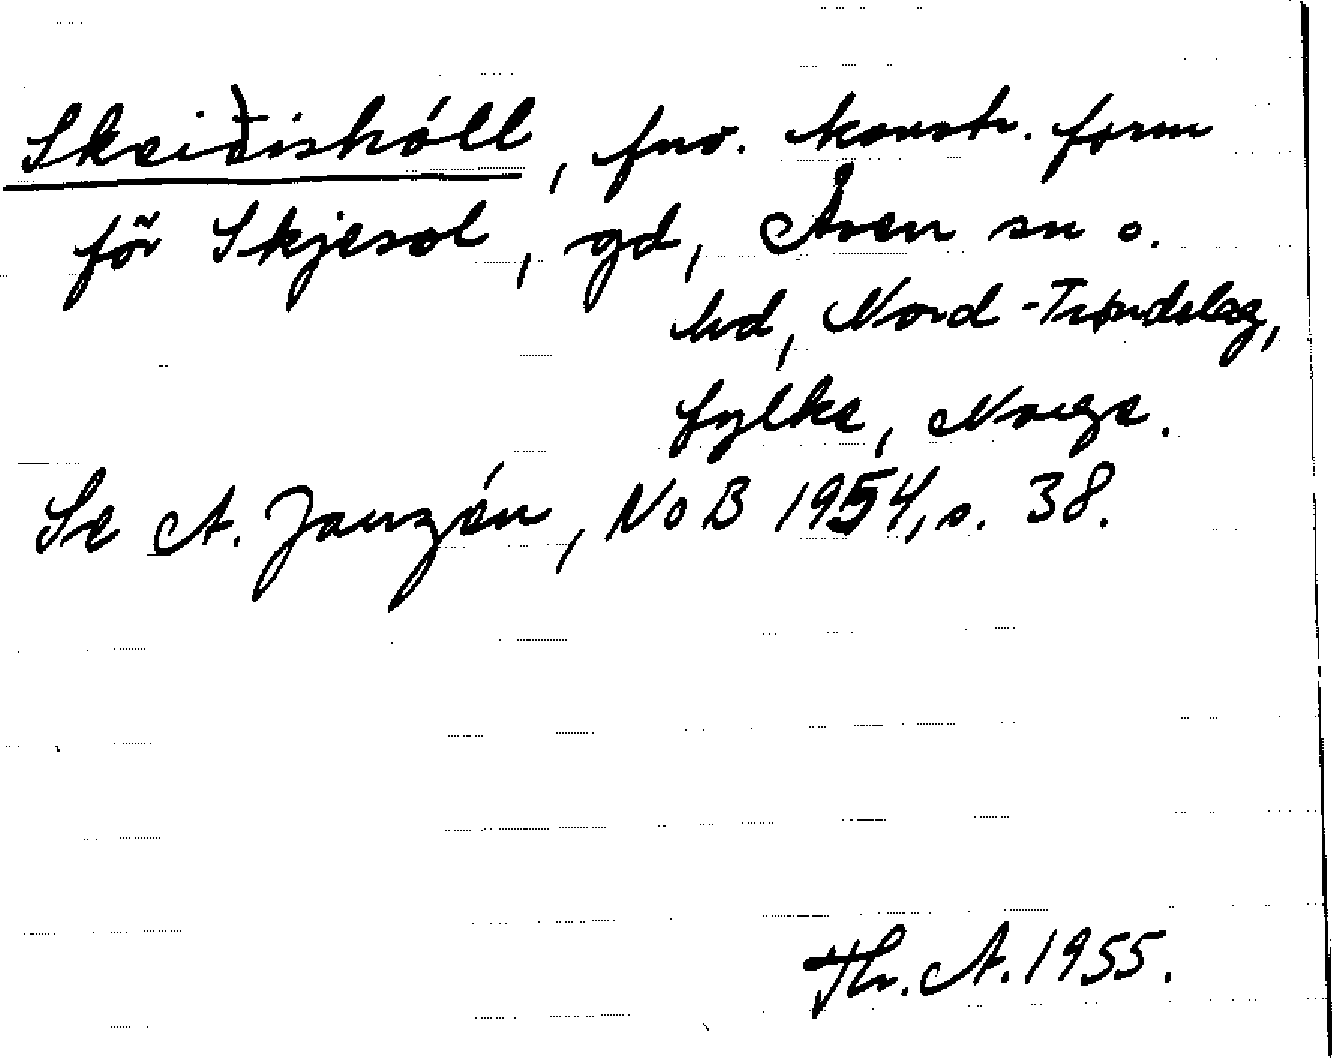 Skeiðishóll, fno. konstr. form
för Skjesol, gd, Åsen sn o.
hd, Nord-Trøndelag,
fylke, Norge.
Se A. Janzén, NoB 1954, s. 38.
Th. A. 1955.